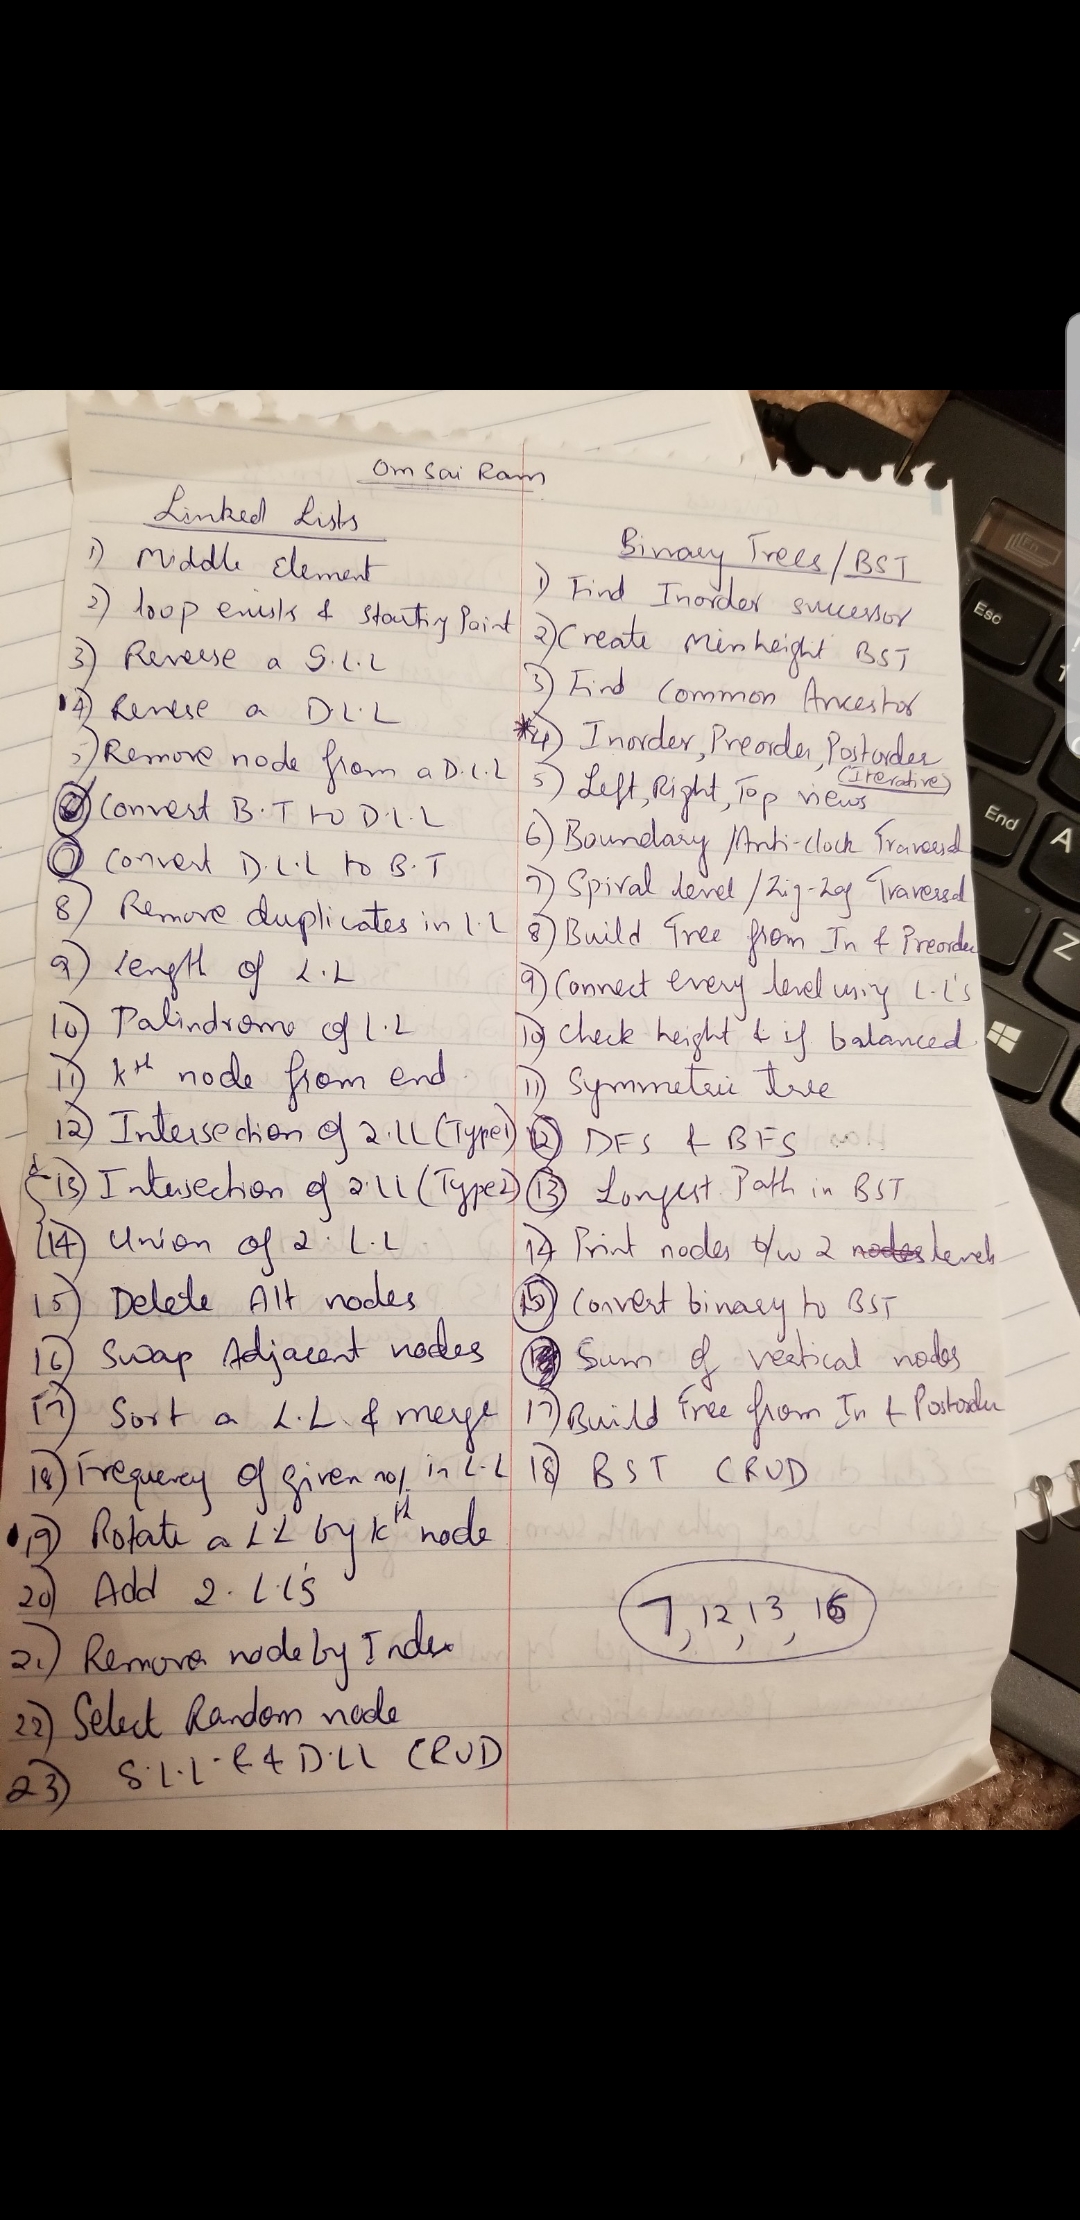 Om Sai Ram
Linked Lists
1) Middle Element
2) loop exists & Starting Point
3) Reverse a S.L.L
4) Reverse a D.L.L
5) Remove node from a D.L.L
6) Convert B.T to D.L.L
7) Convert D.L.L to B.T
8) Remove duplicates in L.L
9) length of L.L
10) Palindrome of L.L
11) kth node from end
12) Intersection of 2.LL (Type1)
13) Intersection of 2.LL (Type2)
14) Union of 2. L.L
15) Delete Alt nodes
16) Swap Adjacent nodes
17) Sort a L.L & merge
18) Frequency of given no/ in L.L
19) Rotate a L.L by kth node
20) Add 2. L.L's
21) Remove node by Index
22) Select Random node
23) S.L.L & D.LL CRUD
Binary Trees/BST
1) Find Inorder successor
2) Create Min height BST
3) Find Common Ancestor
*4) Inorder, Preorder, Postorder
(Iterative)
5) Left, Right, Top views
6) Boundary /Anti-clock Traversal
7) Spiral level /Zig-Zag Traversal
8) Build Tree from In & Preorder
9) Connect every level using L.L's
10) Check height & if balanced
11) Symmetric tree
12) DFS & BFS
13) Longest Path in BST
14) Print nodes b/w 2 levels
15) Convert binary to BST
Sum of vertical nodes
17) Build Tree from In & Postorder
18) BST CRUD
7, 12, 13, 16
Fn
Esc
End
A
Z